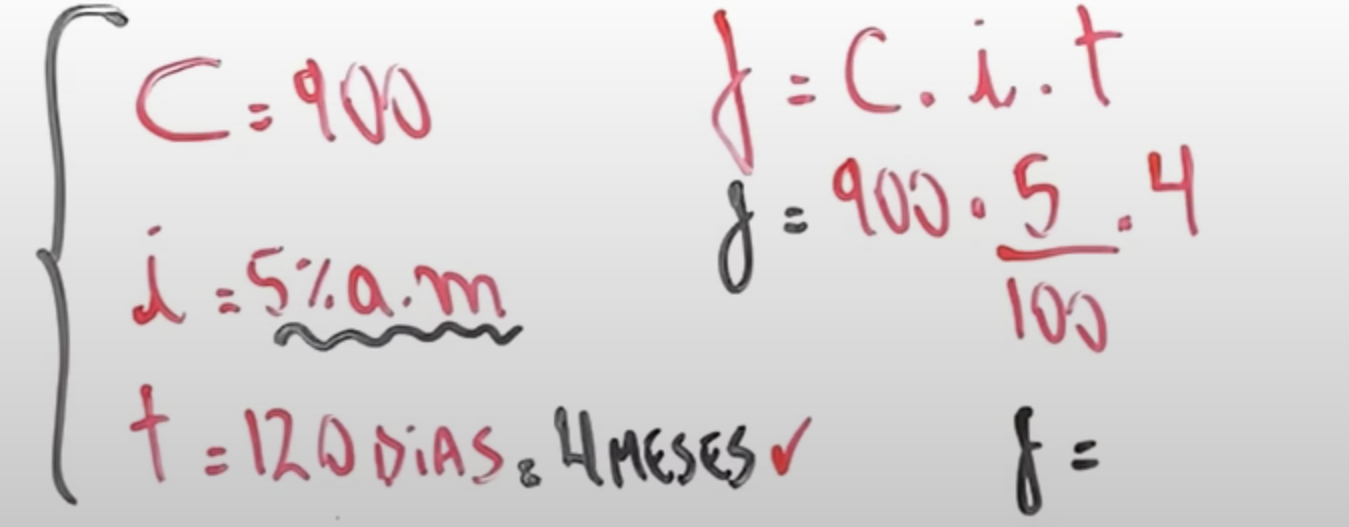 C = 900
i = 5% a.m
t = 120 DiAS = 4 MESES ✓
j = C . i . t
j = 900 . 5 . 4
100
j =